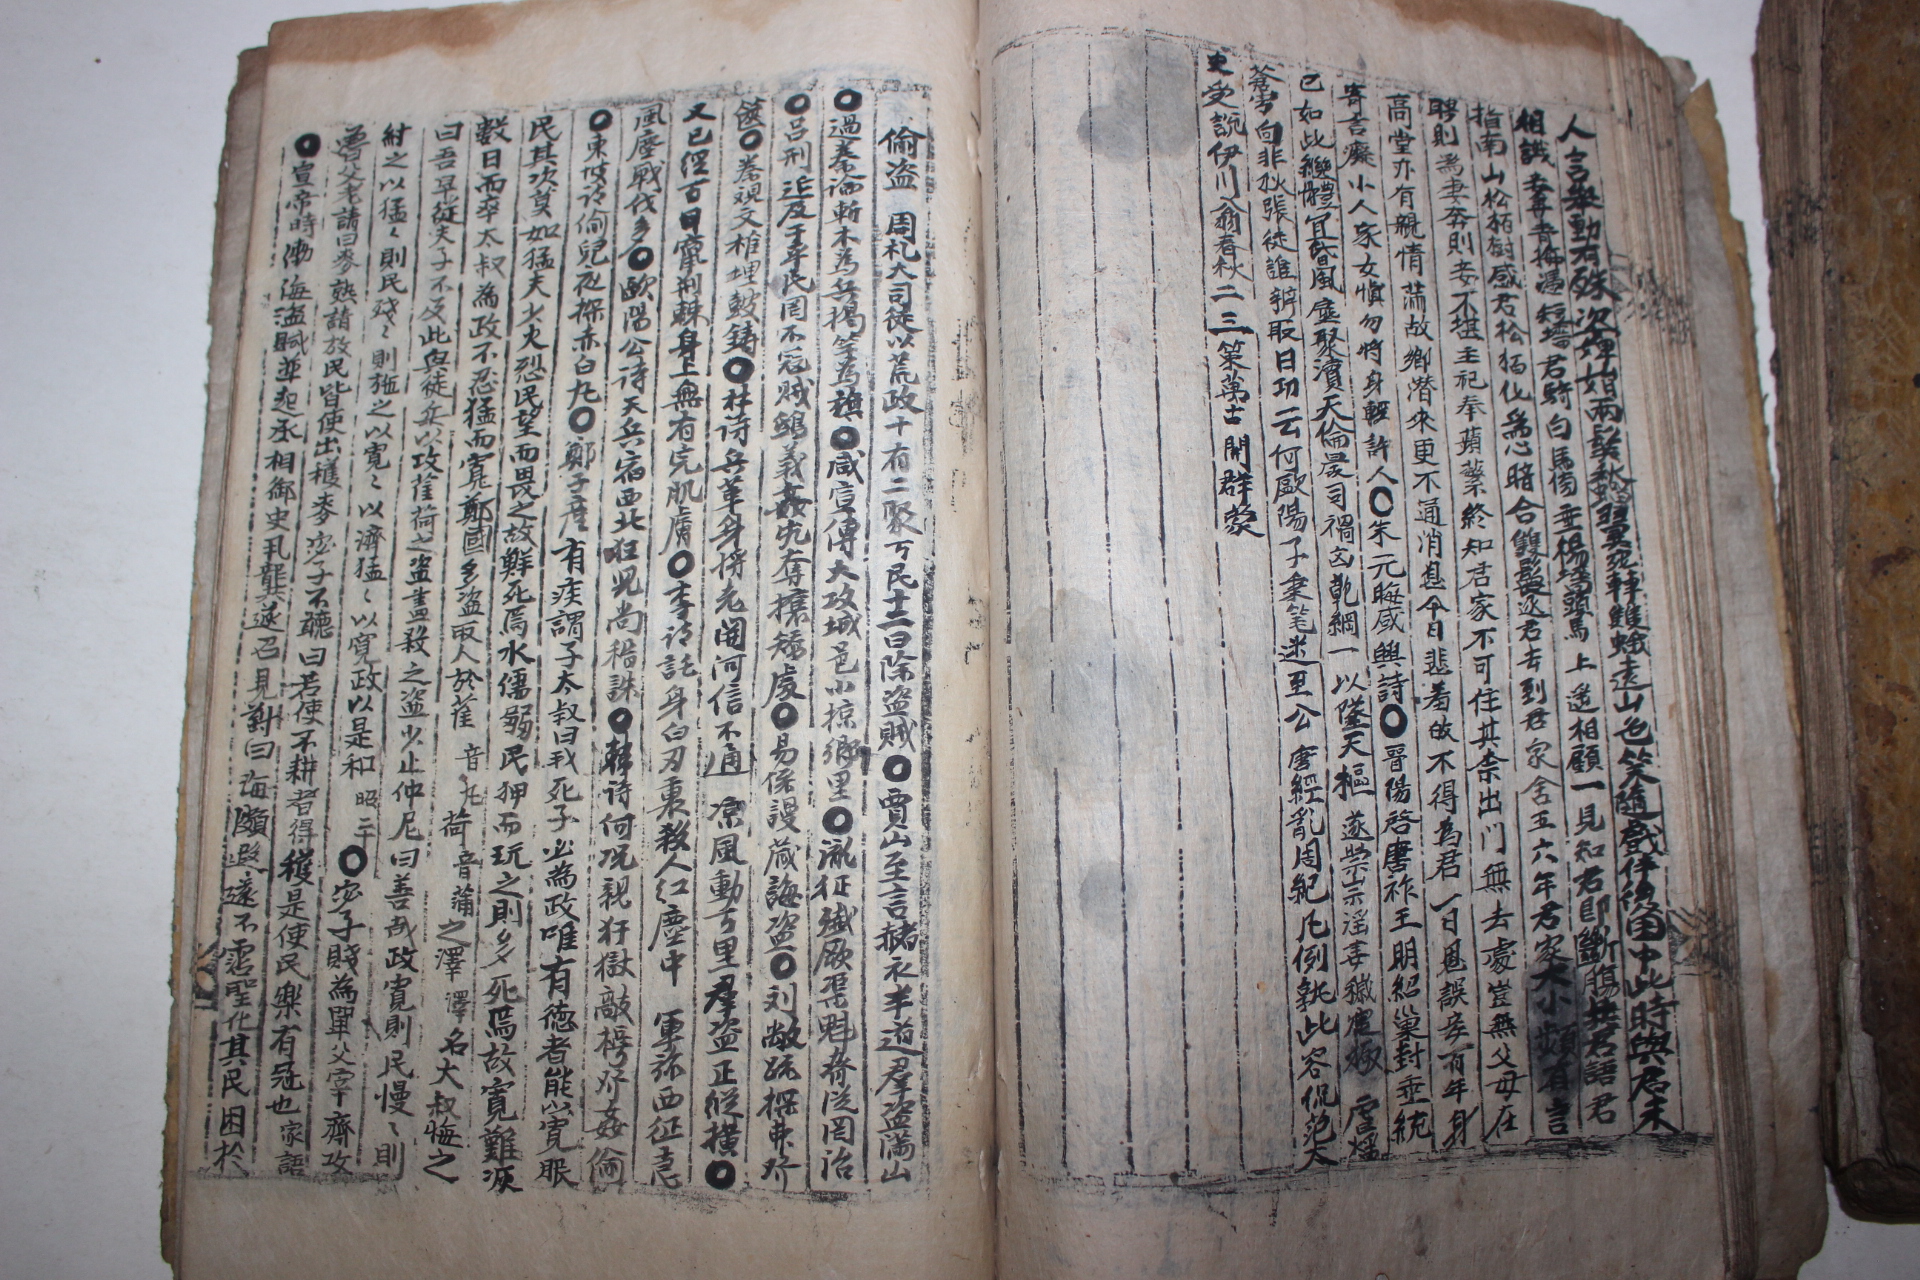 人言擧動有殊姿嬋娟兩鬢秋蟬翼宛轉雙蛾遠山色笑隨戲伴後園中此時與君未
相識妾弄青梅憑短墻君騎白馬傍垂楊墻頭馬上遙相顧一見知君即斷腸共君語君
指南山松栢樹感君松栢化爲心暗合雙鬟逐君去到君家舍五六年君家大小頻有言
聘則爲妻奔則妾不堪主祀奉蘋蘩終知君家不可住其奈出門無去處豈無父母在
高堂亦有親情滿故鄉潛來更不通消息今日悲羞歸不得為君一日恩誤妾百年身
寄言癡小人家女愼勿將身輕許人〇朱元晦感興詩〇晉陽啓唐祚王明紹巢封垂統
已如此繼體宜昏風麀聚瀆天倫晨司禍凶乾綱一以墜天樞遂崇崇淫毒穢宸極虐焰
向非狄張徒誰辨取日功云何歐陽子秉筆迷至公唐經亂周紀凡例孰此容侃范大
史受說伊川翁春秋二三策萬古開群蒙
偷盜 周札大司徒以荒政十有二聚万民十二曰除盜賊〇賈山至言赭衣半道羣盜滿山
〇過秦論斬木為兵揭竿為旗〇咸宣傳大攻城邑小掠鄉里〇胤征殲厥渠魁脅從罔治
〇呂刑延及于平民罔不寇賊鴟義姦宄奪攘矯虔〇易係謾藏誨盜〇
〇杜詩兵革身將老關河信不通 凉風動万里羣盜正縱橫〇
又已經百日竄荊棘身上無有完肌膚〇李詩託身白刃裏殺人红塵中 軍
風塵戰伐多〇歐陽公詩天兵宿西北狂児尚稽誅〇韓詩何況親犴獄敲榜發姦偷
〇東坡詩偷兒夜探赤白丸〇鄭子産有疾謂子太叔曰我死子必為政唯有德者能以寬服
民其次莫如猛夫火烈民望而畏之故鮮死焉水懦弱民狎而玩之則多死焉故寬難疾
數日而卒太叔為政不忍猛而寬鄭國多盜取人於萑 音丸 苻 音蒲 之澤 澤名 大叔悔之
曰吾早從夫子不及此興徒兵以攻萑苻之盜盡殺之盜少止仲尼曰善哉政寬則民慢〻則
糾之以猛〻則民殘〻則施之以寬〻以濟猛〻以寬政以是和 昭二十 〇宓子賤為單父宰齊攻
魯父老請曰麥熟請放民皆使出穫麥宓子不聽曰若使不耕者得穫是使民樂有寇也 家語
〇宣帝時渤海盜賊並起丞相御史 龔遂召見對曰海瀕遐遠不霑聖化其民困於